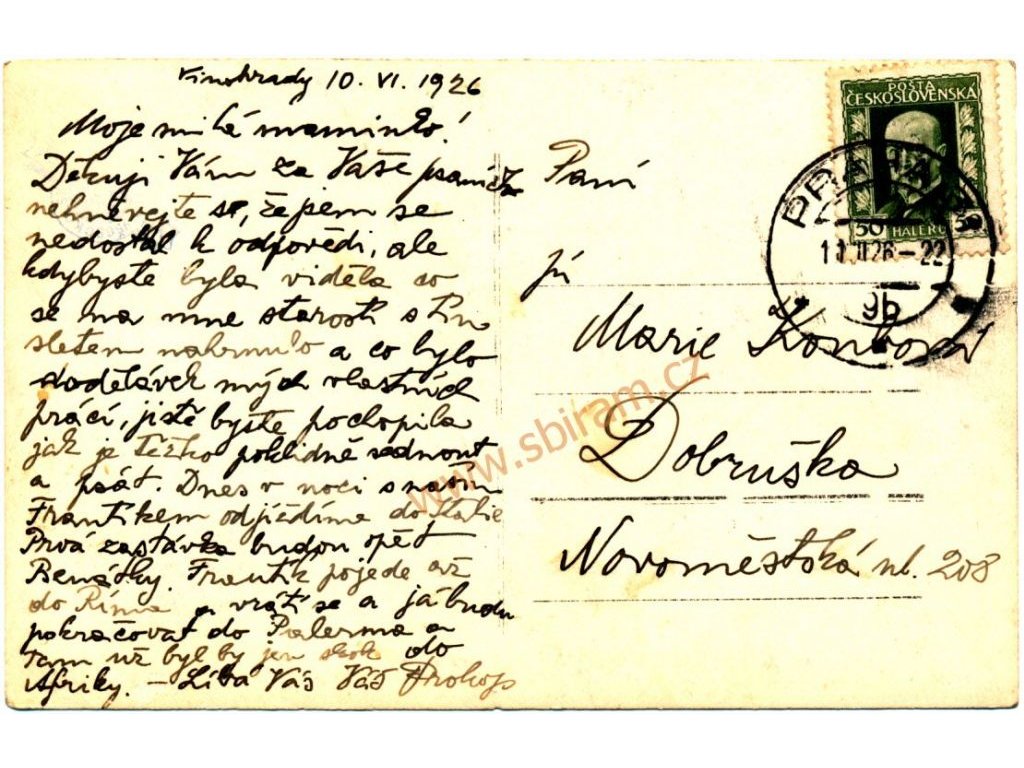 Vinohrady 10. VI. 1926
Moje milá maminko!
Děkuji Vám za Vaše psaníčko
nehněvejte se, že jsem se
nedostal k odpovědi, ale
kdybyste byla viděla co
se na mne starostí s
sletem nahrnulo a co bylo
dodělávek mých vlastních
prácí, jistě byste pochopila
jak je těžko poklidně sednout
a psát. Dnes v noci s naším
Frantíkem odjíždíme do Italie
Prvá zastávka budou opět
Benátky. Frantík pojede až
do Říma a vrátí se a já budu
pokračovat do Palerma a
tam už byl by jen skok do
Afriky. – Líbá Vás Váš Prokop
Paní
Marie
Dobruška
Novoměstská ul. 208
POŠTA
ČESKOSLOVENSKÁ
50 HALÉŘŮ 50
PRAHA
9b
www.sbiram.cz